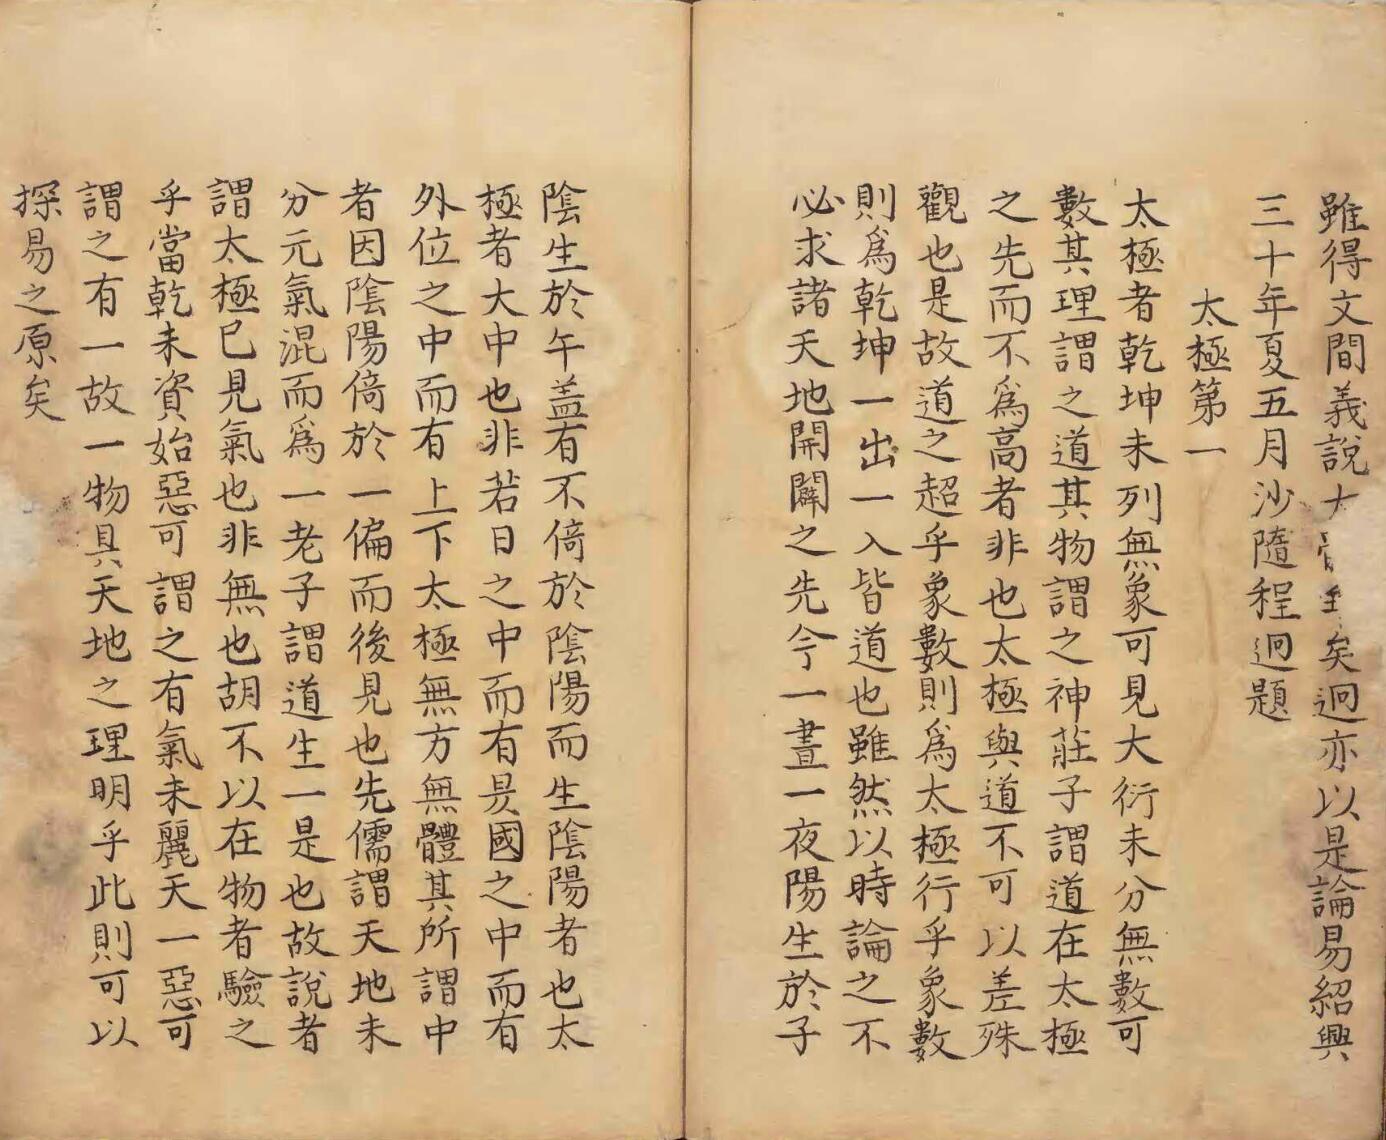 雖得文間義說矣迥亦以是論易紹興
三十年夏五月沙隨程迥題
太極第一
太極者乾坤未列無象可見大衍未分無數可
數其理謂之道其物謂之神莊子謂道在太極
之先而不爲高者非也太極與道不可以差殊
觀也是故道之超乎象數則爲太極行乎象數
則爲乾坤一出一入皆道也雖然以時論之不
必求諸天地開闢之先今一晝一夜陽生於子
陰生於午盖有不倚於陰陽而生陰陽者也太
極者大中也非若日之中而有昃國之中而有
外位之中而有上下太極無方無體其所謂中
者因陰陽倚於一偏而後見也先儒謂天地未
分元氣混而爲一老子謂道生一是也故說者
謂太極巳見氣也非無也胡不以在物者驗之
乎當乾未資始惡可謂之有氣未麗天一惡可
謂之有一故一物具天地之理明乎此則可以
探易之原矣